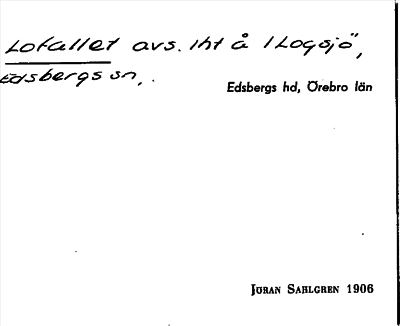 Lofallet avs. iht å 1 Logsjö,
Edsbergs sn,
Edsbergs hd, Örebro län
JÖRAN SAHLGREN 1906